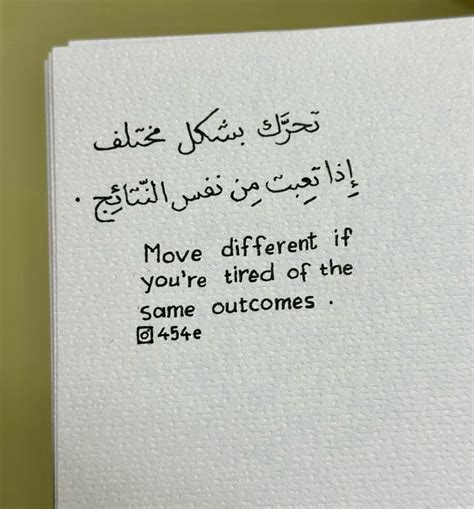 تحرَّك بشكل مختلف
إِذا تعِبت مِن نفس النّتائِج .
Move different if
you're tired of the
same outcomes .
454e